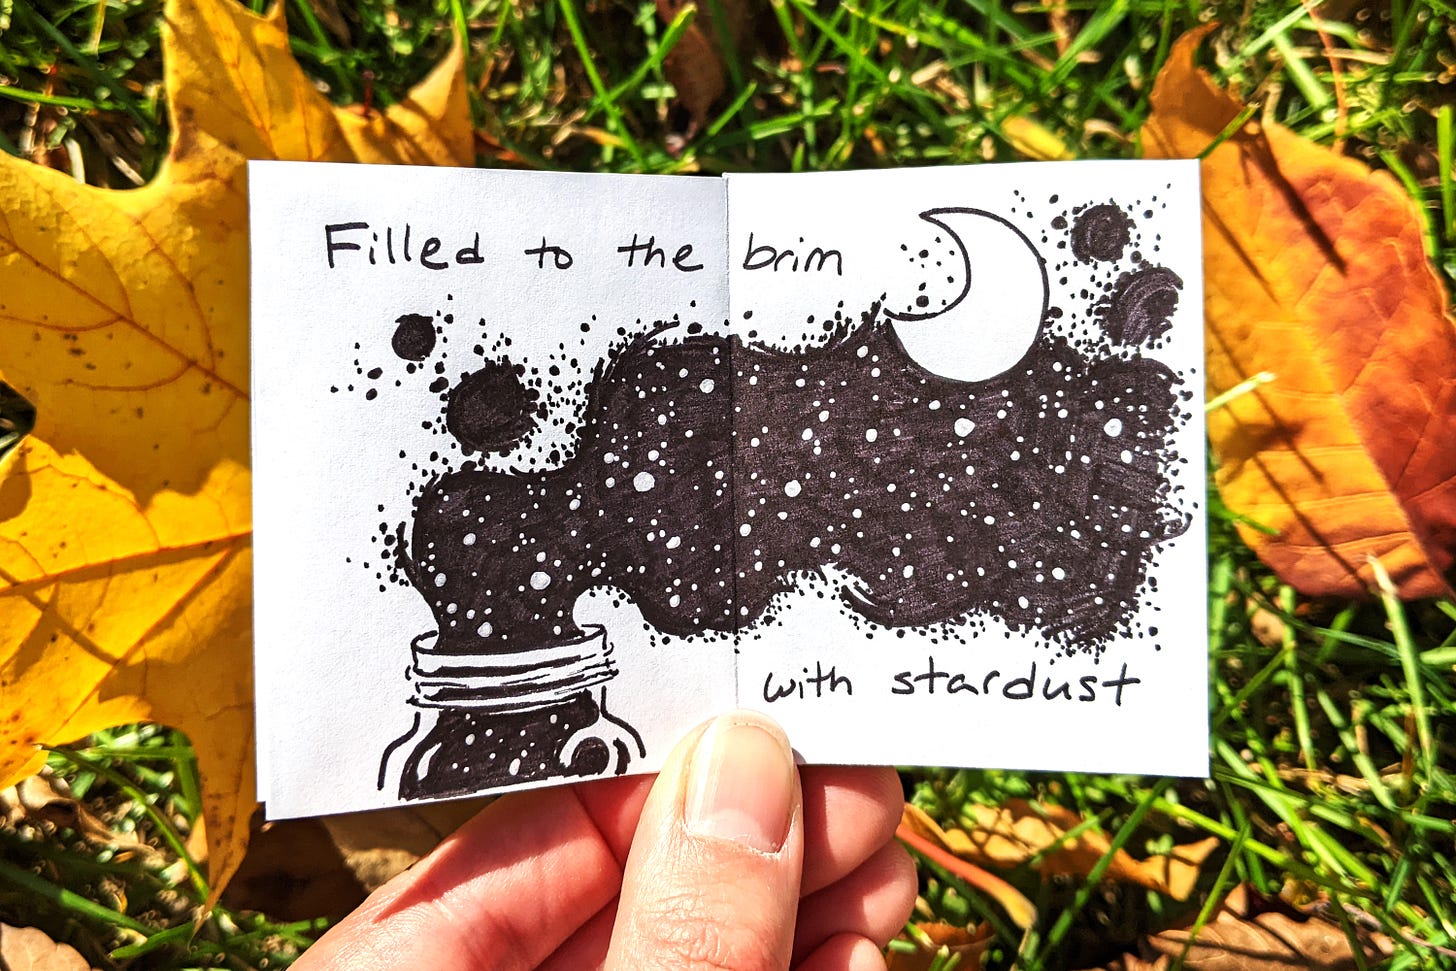 Filled to the brim
with stardust